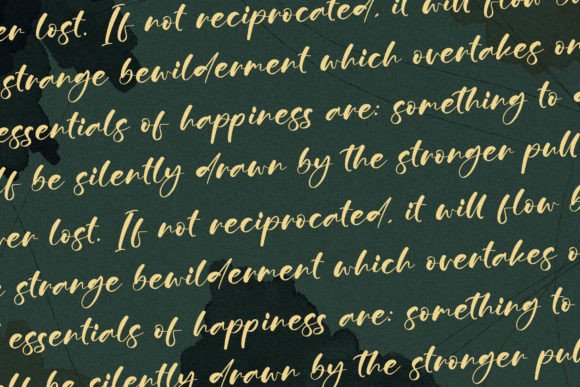 er lost. If not reciprocated, it will flow
strange bewilderment which overtakes on
essentials of happiness are: something to
lf be silently drawn by the stronger pull
ver lost. If not reciprocated, it will flow b
strange bewilderment which overtakes o
essentials of happiness are: something to
lf be silently drawn by the stronger pul